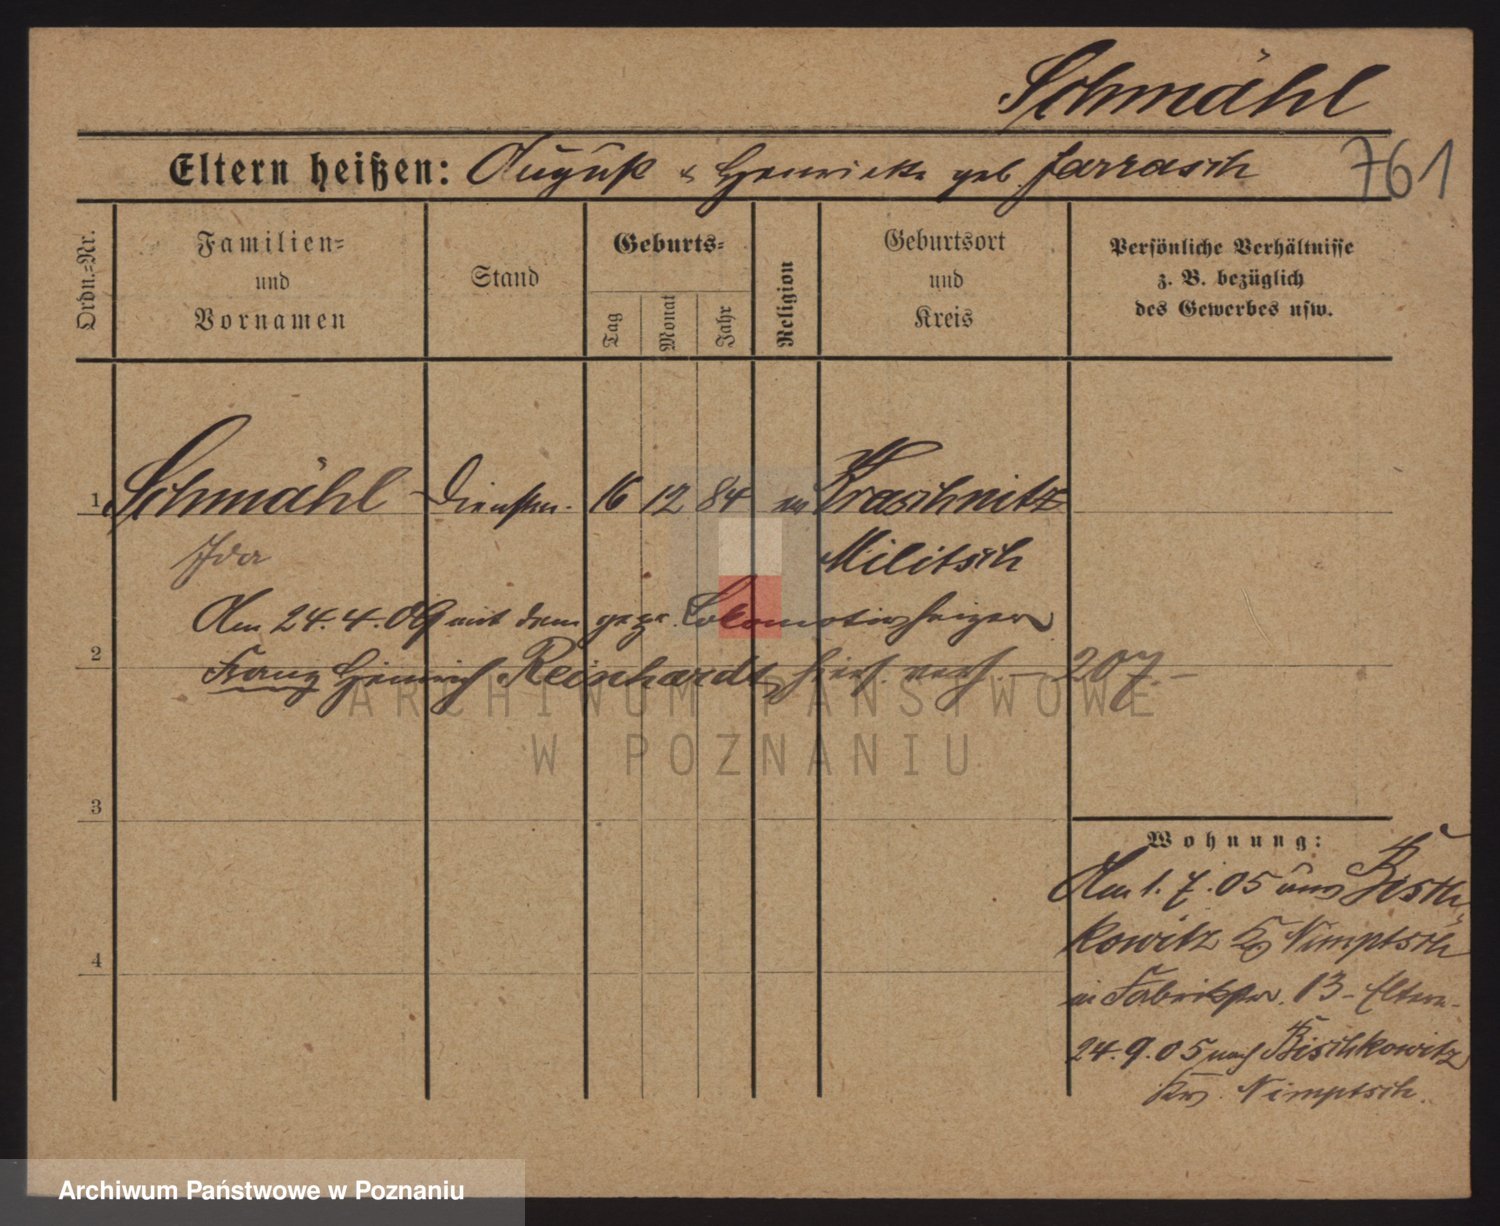 Schmähl
Eltern heißen: August & Henriette geb. Jarrasch 761
Ordn.=Nr.
Familien=
und
Vornamen
Stand
Geburts=
Tag
Monat
Jahr
Religion
Geburtsort
und
Kreis
Persönliche Verhältnisse
z. B. bezüglich
des Gewerbes usw.
1 Schmähl 16 12 84 ev Kraschnitz
Ida Militsch
Am 24.4.09 mit dem Lokomotivheizer
2 Franz Heinrich Reinhardt hier verh. – 207.–
3
Wohnung:
Am 1.7.05 aus
kowitz Nimptsch
4
in 13 – Eltern –
24.9.05 nach Bischkowitz
Krs. Nimptsch.
ARCHIWUM PAŃSTWOWE
W POZNANIU
Archiwum Państwowe w Poznaniu